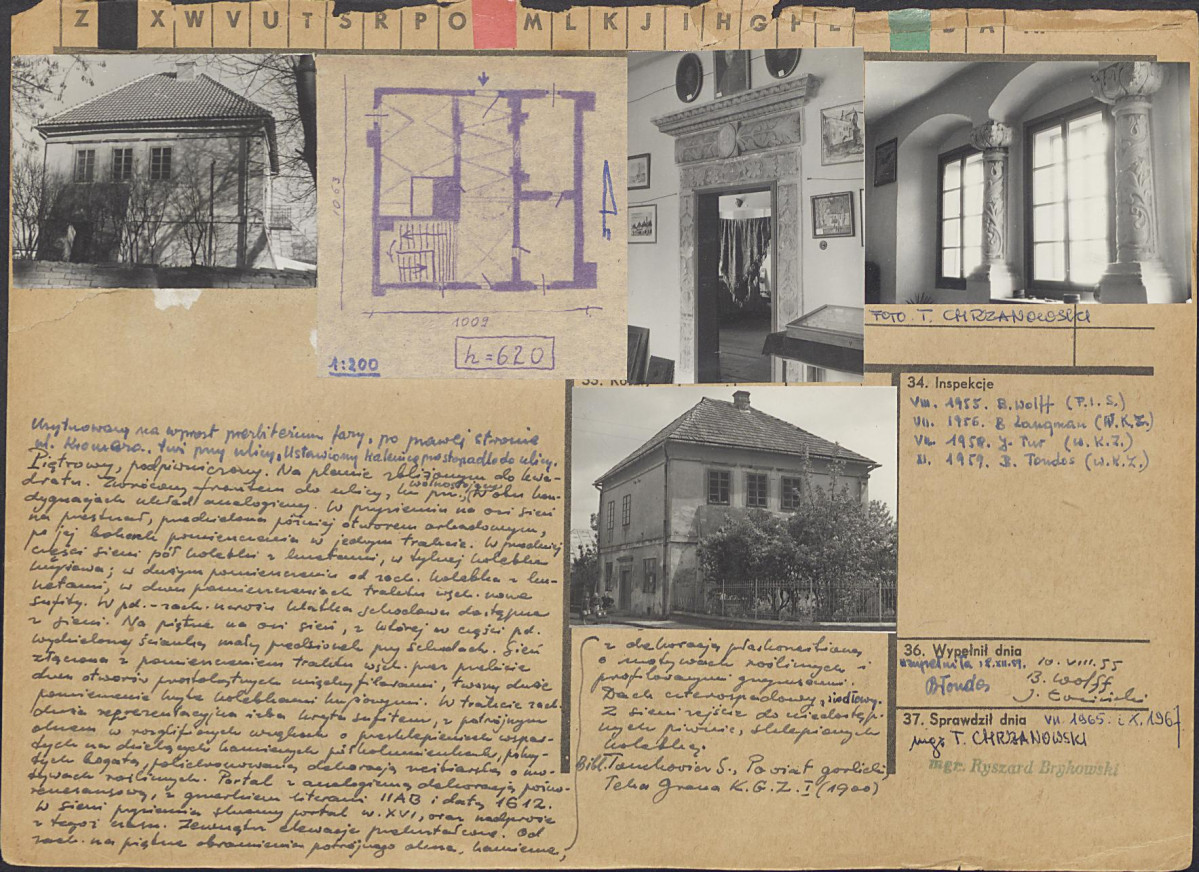 Z X W V U T S R P O M L K J I H G F E D A
1063
1009
1:200
h=620
FOTO. T. CHRZANOWSKI
34. Inspekcje
VIII. 1955. B. Wolff (P.I.S.)
VII. 1956. B. Langman (W.K.Z.)
VII. 1958. J. Tur (W.K.Z.)
XI. 1959. B. Tondos (W.K.Z.)
36. Wypełnił dnia
uzupełniła 18.XII.59. 10. VIII. 55
BTondos B. Wolff
J. Łoziński
37. Sprawdził dnia VII. 1965. i X. 1967
mgr T. CHRZANOWSKI
mgr. Ryszard Brykowski
Usytuowany na wprost prezbiterium fary, po prawej stronie
ul. Kromera, tuż przy ulicy. Ustawiony kalenicą prostopadle do ulicy.
Piętrowy, podpiwniczony. Na planie zbliżonym do kwa-
dratu. Zwrócony frontem do ulicy, ku pn., wolnostojący. W obu kon-
dygnacjach układ analogiczny. W przyziemiu na osi sień
na przestrzał, przedzielona później otworem arkadowym,
po jej bokach pomieszczenia w jednym trakcie. W przedniej
części sieni pół kolebki z lunetami, w tylnej kolebka
krzyżowa; w dużym pomieszczeniu od zach. kolebka z lu-
netami, w dwu pomieszczeniach traktu wsch. nowe
sufity. W pd.-zach. narożu klatka schodowa dostępna
z sieni. Na piętrze na osi sień, z której w części pd.
wydzielony ścianką mały przedsionek przy schodach. Sień
złączona z pomieszczeniem traktu wsch. przez przebicie
dwu otworów prostokątnych międzyfilarami, tworzy duże
pomieszczenie kryte kolebkami krzyżowymi. W trakcie zach.
duża reprezentacyjna izba kryta sufitem, z potrójnym
oknem w rozglifionych wnękach o przesklepieniach wspar-
tych na dzielących kamiennych półkolumienkach, pokry-
tych bogatą, polichromowaną dekoracją rzeźbiarską o mo-
tywach roślinnych. Portal z analogiczną dekoracją późno-
renesansową, z gmerkiem literami IIAB i datą 1612.
W sieni przyziemia skromny portal w. XVI, oraz nadproże
z tegoż czasu. Zewnątrz elewacje przekształcone. Od
zach. na piętrze obramienia potrójnego okna, kamienne,
z dekoracją płaskorzeźbioną
o motywach roślinnych i
profilowanymi gzymsami.
Dach czterospadowy, siodłowy.
Z sieni zejście do niedostęp-
nych piwnic, sklepionych
kolebką.
Bibl. Tomkowicz S., Powiat gorlicki
Teka Grona K.G.Z. I (1900)